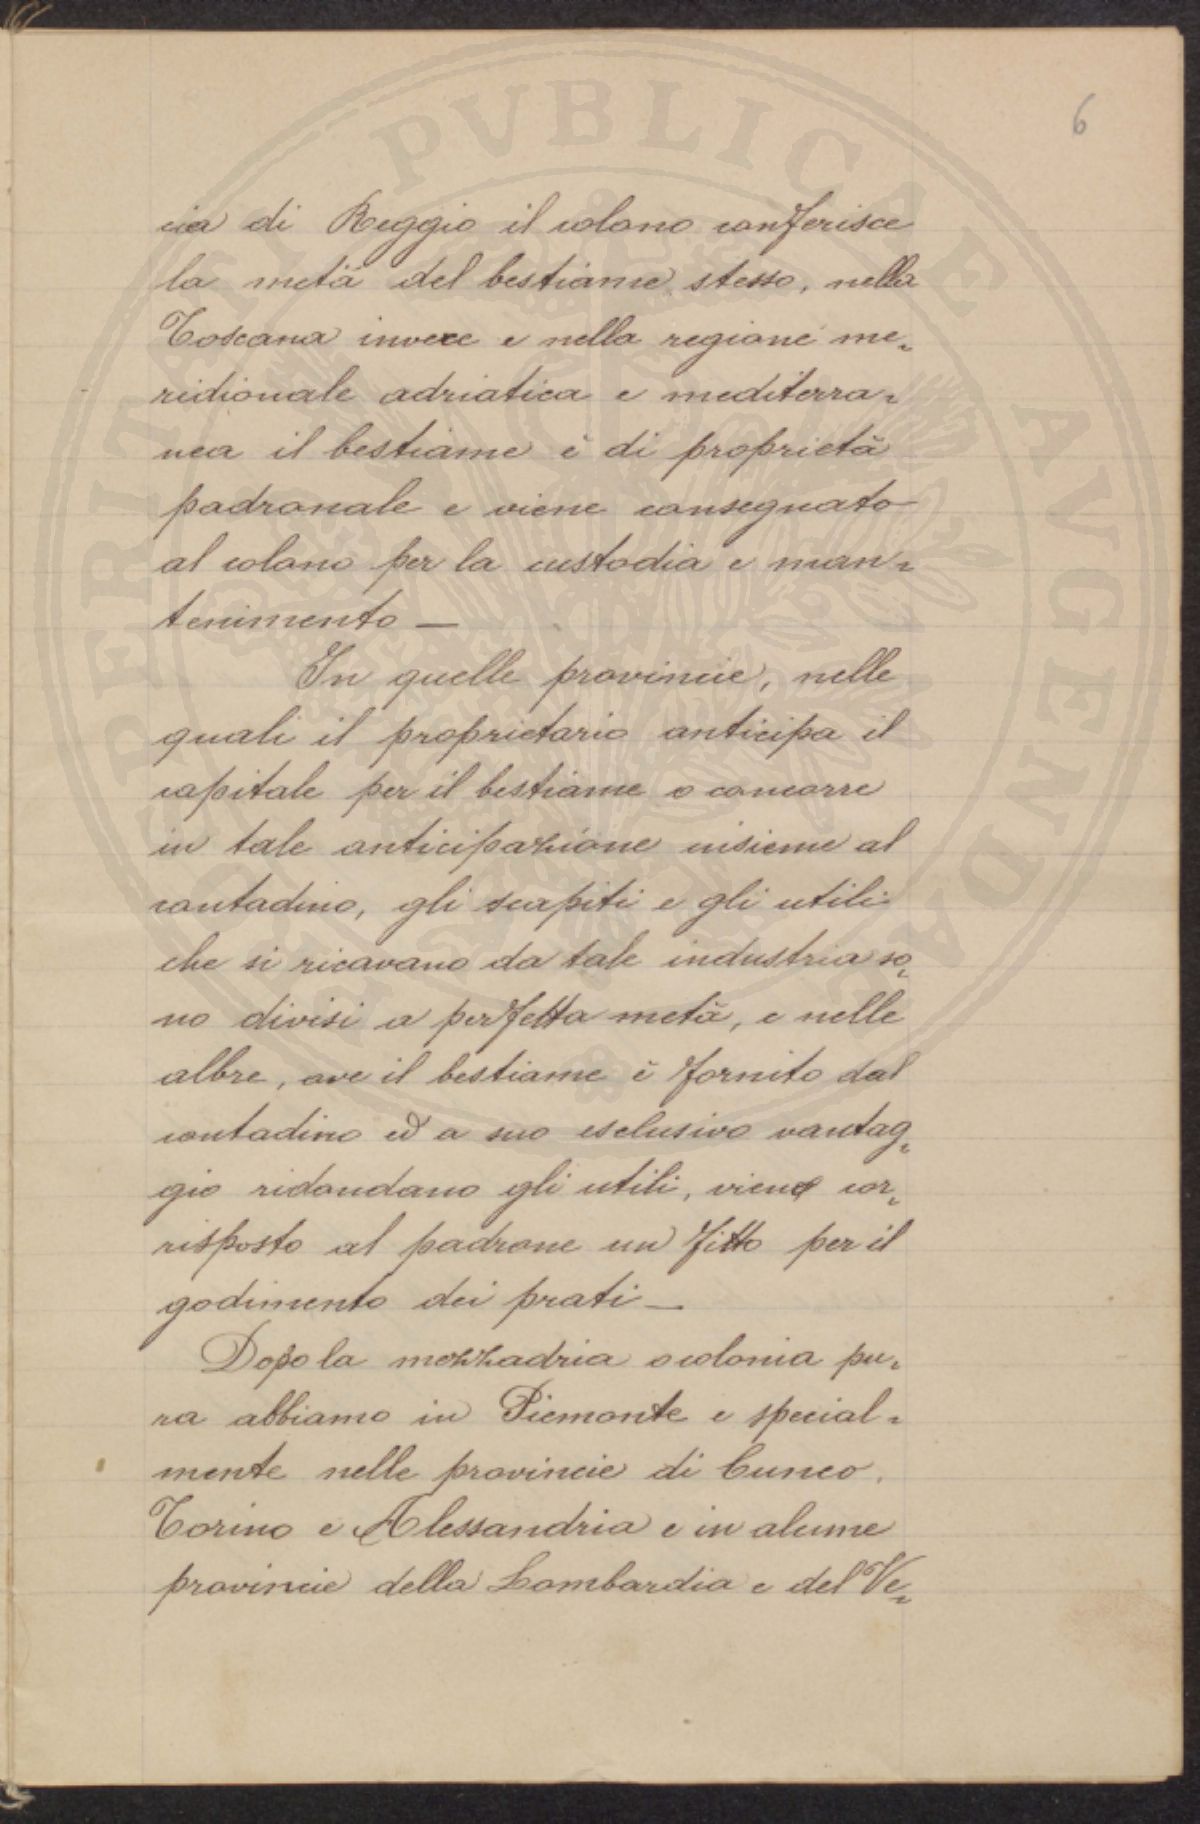 6
cia di Reggio il colono conferisce
la metà del bestiame stesso, nella
Toscana invece e nella regione me=
ridionale adriatica e mediterra=
nea il bestiame è di proprietà
padronale e viene consegnato
al colono per la custodia e man=
tenimento —
In quelle provincie, nelle
quali il proprietario anticipa il
capitale per il bestiame o concorre
in tale anticipazione insieme al
contadino, gli scapiti e gli utili
che si ricavano da tale industria so=
no divisi a perfetta metà, e nelle
altre, ove il bestiame è fornito dal
contadino ed a suo esclusivo vantag=
gio ridondano gli utili, viene cor=
risposto al padrone un fitto per il
godimento dei prati —
Dopo la mezzadria o colonia pu=
ra abbiamo in Piemonte e special=
mente nelle provincie di Cuneo,
Torino e Alessandria e in alcune
provincie della Lombardia e del Ve=
PUBLICAE AVGENDAE